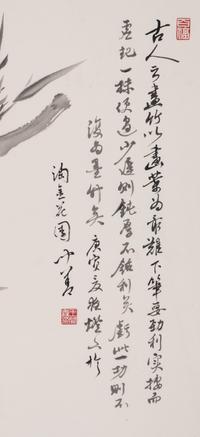 古人云畫竹以畫葉為最難下筆要勁利實按而
虛起一抹便過少遲則鈍厚不銛利矣虧此一功則不
復為墨竹矣庚寅夏夜燈下於
淘金花園